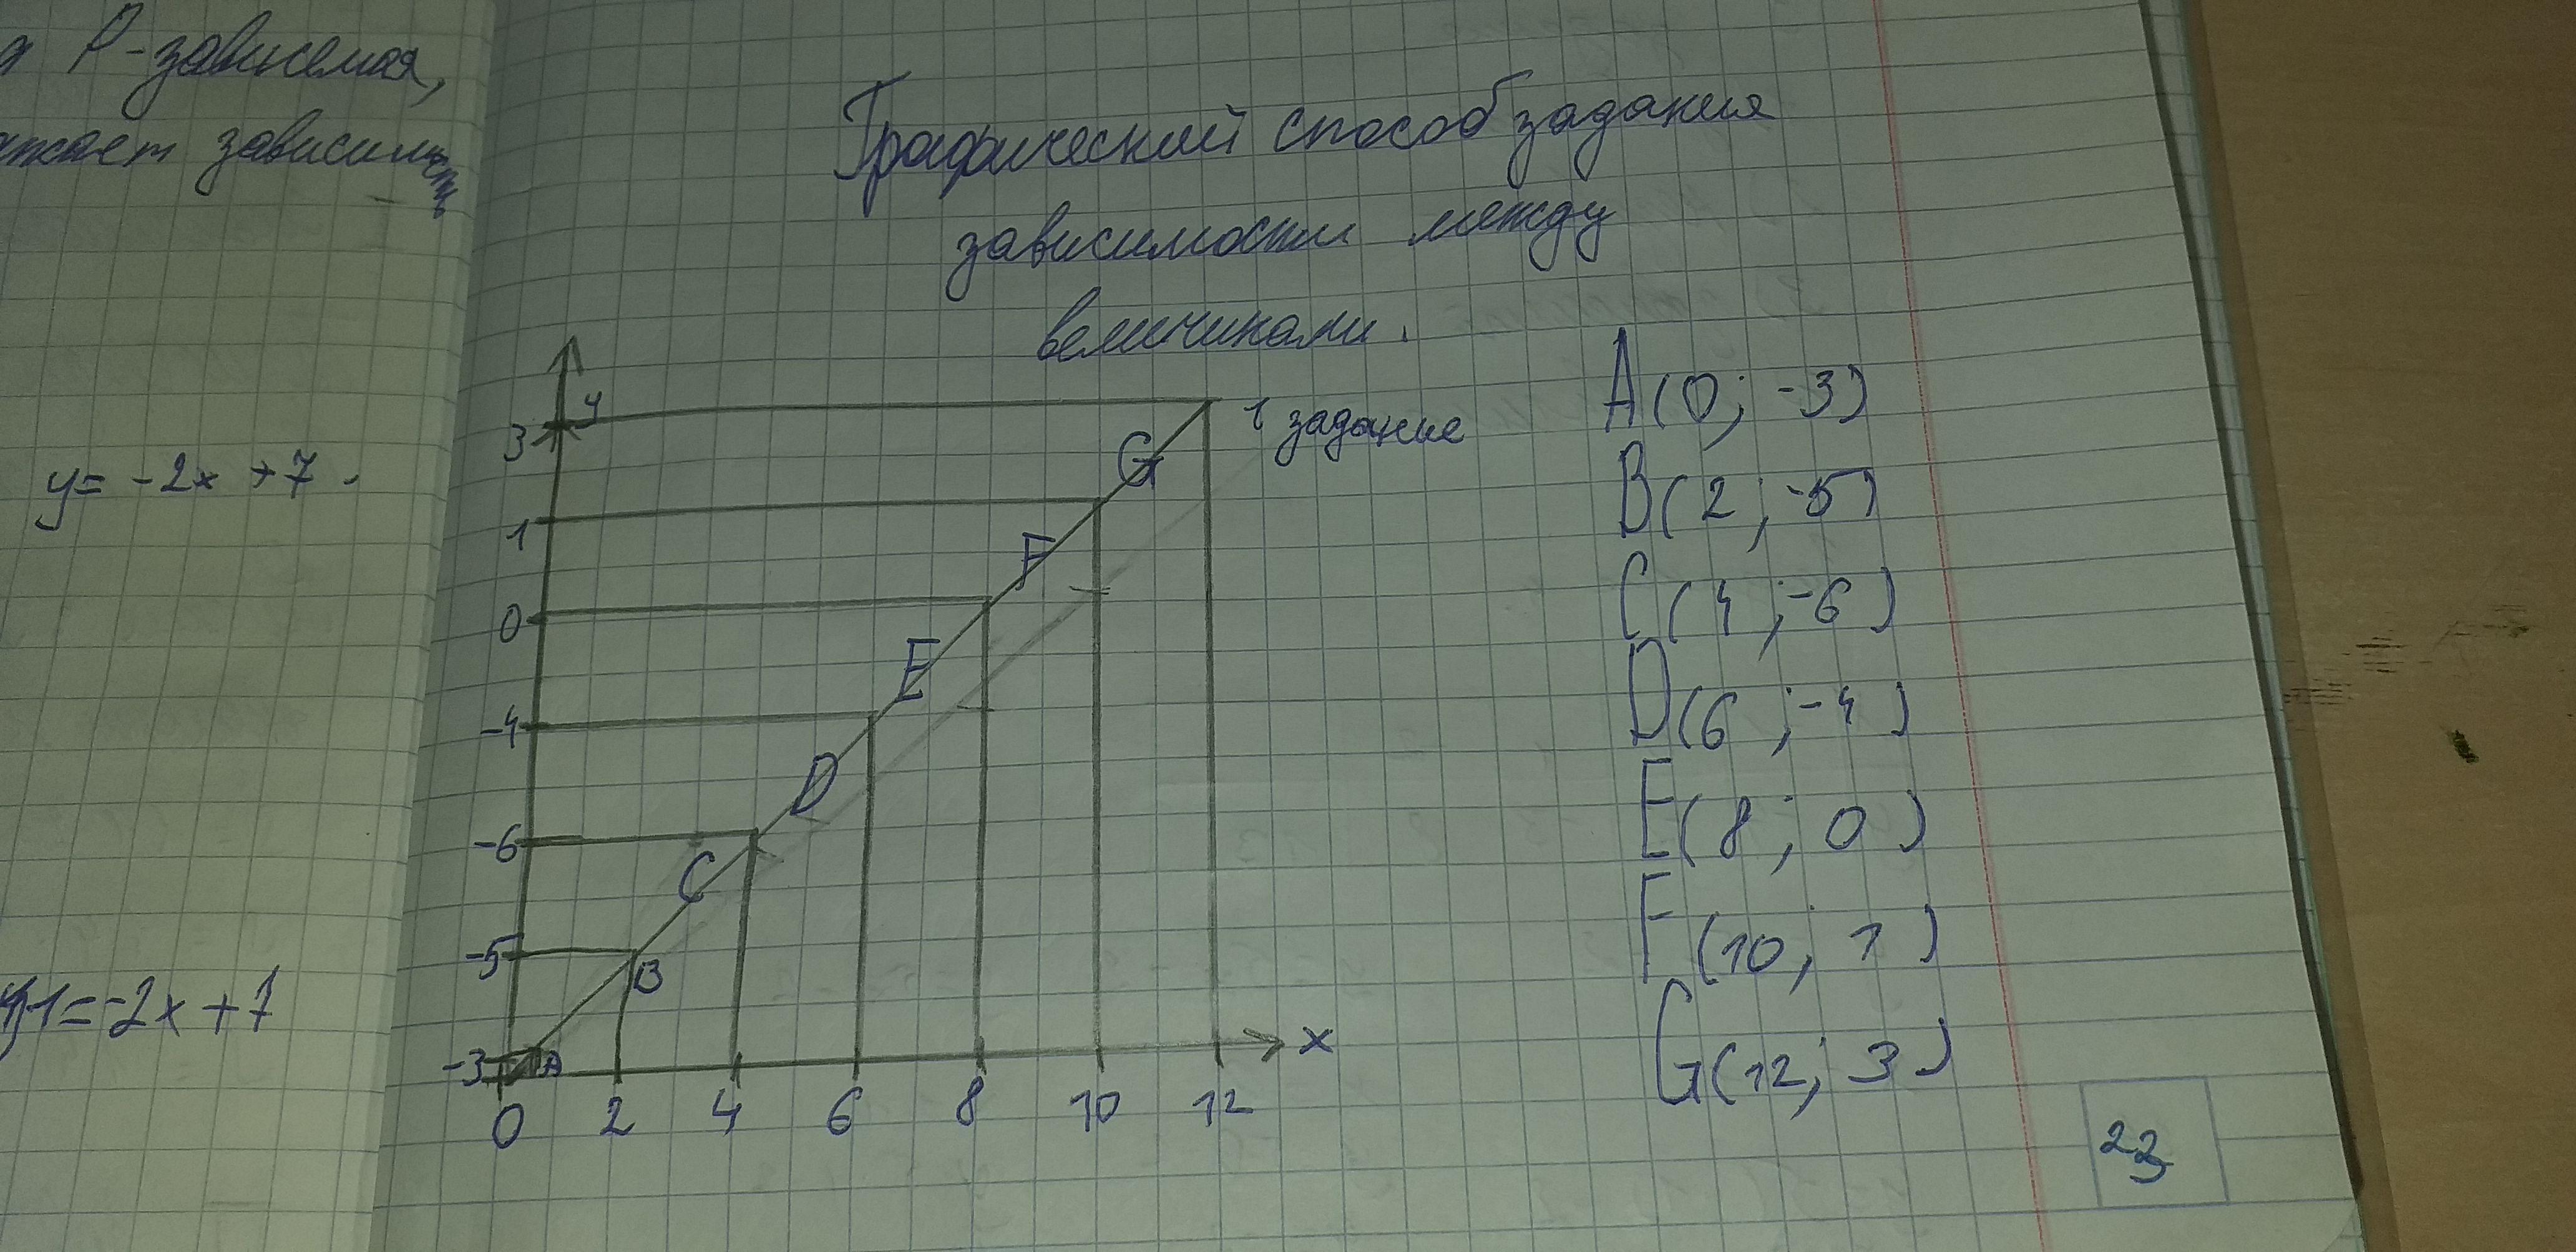 Р-зависемая,
зависимость
y= -2x +7
y1=-2x+7
Графический способ задания
зависимости между
величинами.
1 задание
y
3
1
0
-4
-6
-5
-3
A
B
C
D
E
F
G
0 2 4 6 8 10 12
x
A(0; -3)
B(2; -5)
C(4; -6)
D(6; -4)
E(8; 0)
F(10; 1)
G(12; 3)
23